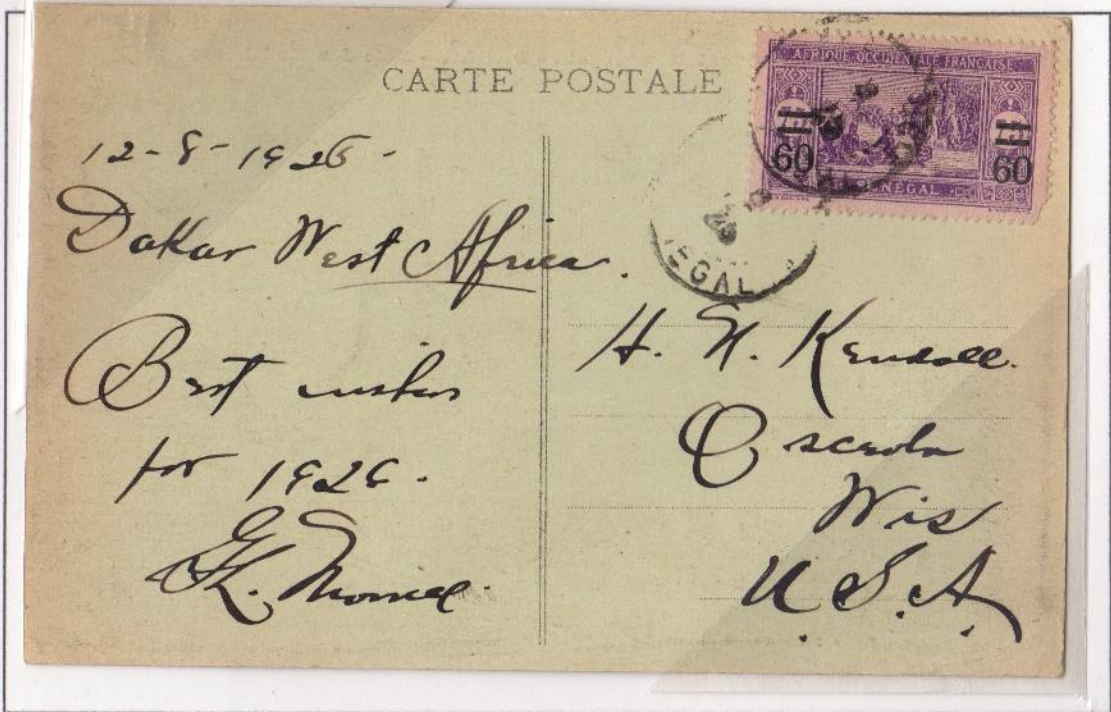 CARTE POSTALE
AFRIQUE OCCIDENTALE FRANÇAISE
75 75
60 60
SÉNÉGAL
EGAL
12-8-1926-
Dakar West Africa.
Best wishes
for 1926.
H. N. Kendall.
Osceola
Wis
U.S.A.